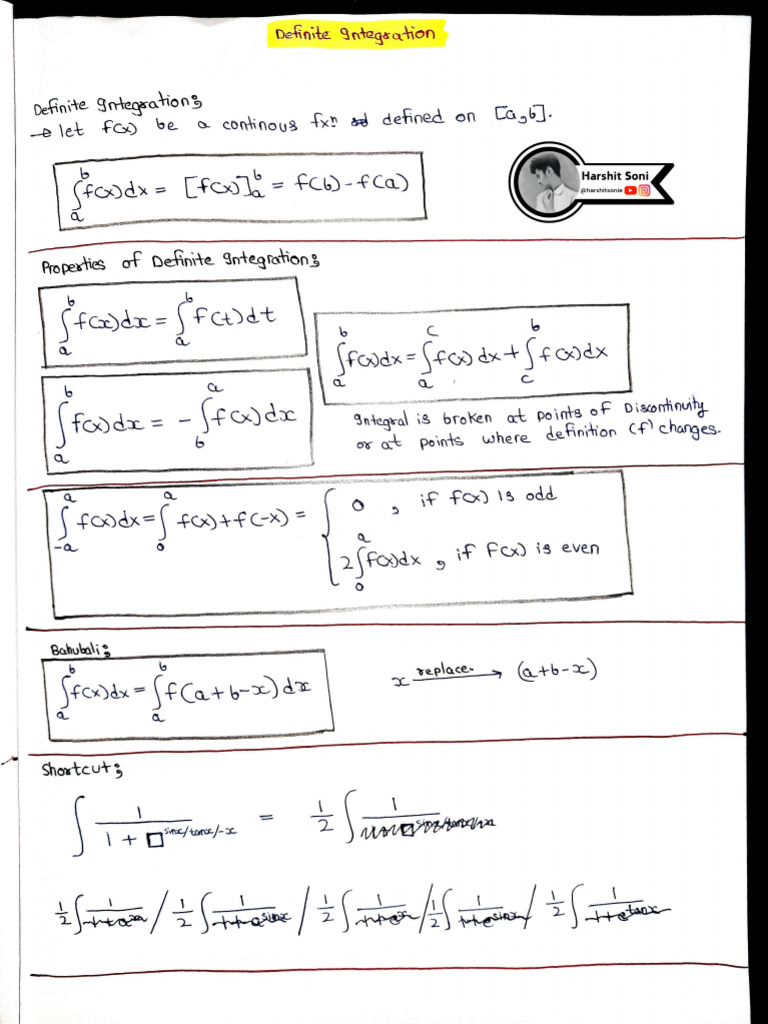 Definite Integration
Definite Integration;
→ let f(x) be a continous fxⁿ defined on [a,b].
∫_a^b f(x)dx = [f(x)]_a^b = f(b) - f(a)
Harshit Soni
@harshitsonie
Properties of Definite Integration;
∫_a^b f(x)dx = ∫_a^b f(t)dt
∫_a^b f(x)dx = ∫_a^c f(x)dx + ∫_c^b f(x)dx
∫_a^b f(x)dx = - ∫_b^a f(x)dx
Integral is broken at points of Discontinuity
or at points where definition (f) changes.
∫_-a^a f(x)dx = ∫_0^a f(x) + f(-x) = { 0 , if f(x) is odd
2∫_0^a f(x)dx , if f(x) is even
Bahubali;
∫_a^b f(x)dx = ∫_a^b f(a+b-x)dx
x replace → (a+b-x)
Shortcut;
∫ 1/(1 + □^(sinx/tanx/-x)) = 1/2 ∫ 1
1/2 ∫ 1/(1+a^x) / 1/2 ∫ 1/(1+a^sinx) / 1/2 ∫ 1/(1+e^x) / 1/2 ∫ 1/(1+e^sinx) / 1/2 ∫ 1/(1+e^tanx)